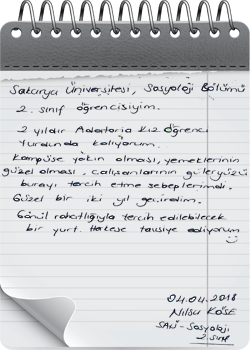 Sakarya Üniversitesi, Sosyoloji Bölümü
2. sınıf öğrencisiyim.
2 yıldır Adatoria Kız Öğrenci
Yurdunda kalıyorum.
Kampüse yakın olması, yemeklerinin
güzel olması, çalışanlarının güleryüzü
burayı tercih etme sebeplerimdi.
Güzel bir iki yıl geçirdim.
Gönül rahatlığıyla tercih edilebilecek
bir yurt. Herkese tavsiye ediyorum
04.04.2018
Nilsu KÖSE
SAÜ-Sosyoloji
2. sınıf